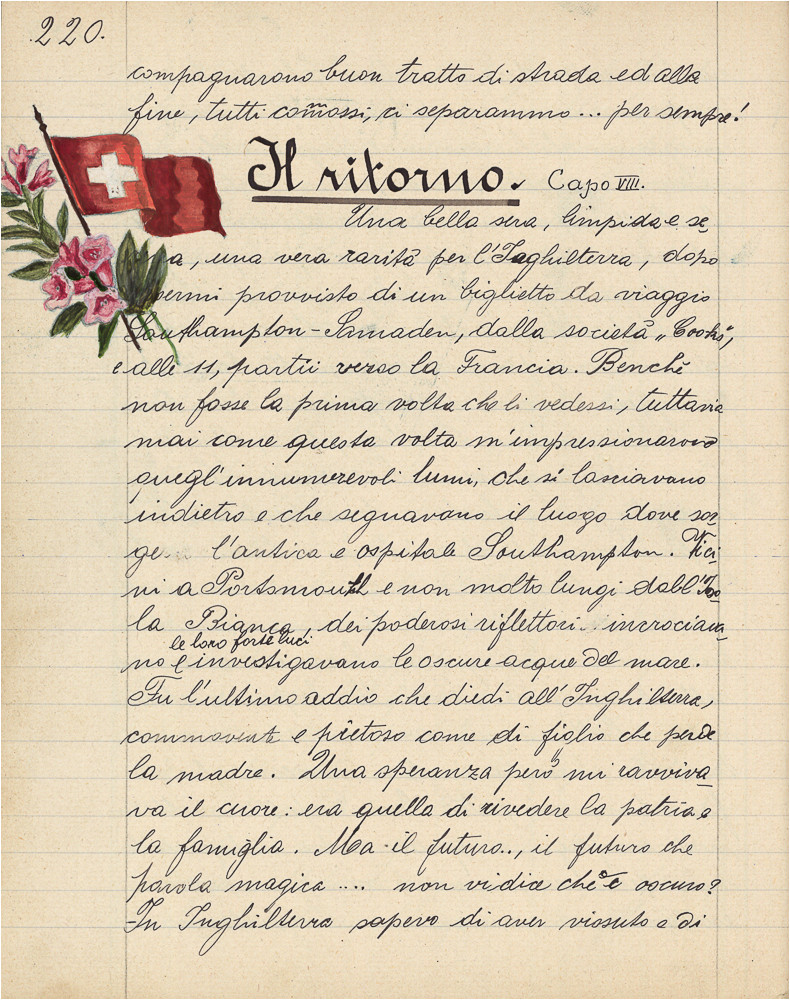 220.
compagnarono buon tratto di strada ed alla
fine, tutti commossi, ci separammo... per sempre!
Il ritorno. Capo VIII.
Una bella sera, limpida e se-
na, una vera rarità per l'Inghilterra, dopo
vermi provvisto di un biglietto da viaggio
Southampton-Samaden, dalla società „Cooks",
e alle 11, partii verso la Francia. Benchè
non fosse la prima volta che li vedessi, tuttavia
mai come questa volta m'impressionarono
quegl'innumerevoli lumi, che si lasciavano
indietro e che segnavano il luogo dove sor-
ge l'antica e ospitale Southampton. Vici-
ni a Portsmouth e non molto lungi dall'Iso-
la Bianca, dei poderosi riflettori incrociava-
le loro forte luci
no e investigavano le oscure acque del mare.
Fu l'ultimo addio che diedi all'Inghilterra,
commovente e pietoso come di figlio che perde
la madre. Una speranza però mi ravviva-
va il cuore: era quella di rivedere la patria e
la famiglia. Ma il futuro.., il futuro che
parola magica .... non vi dice che è oscuro?
In Inghilterra sapevo di aver vissuto e di